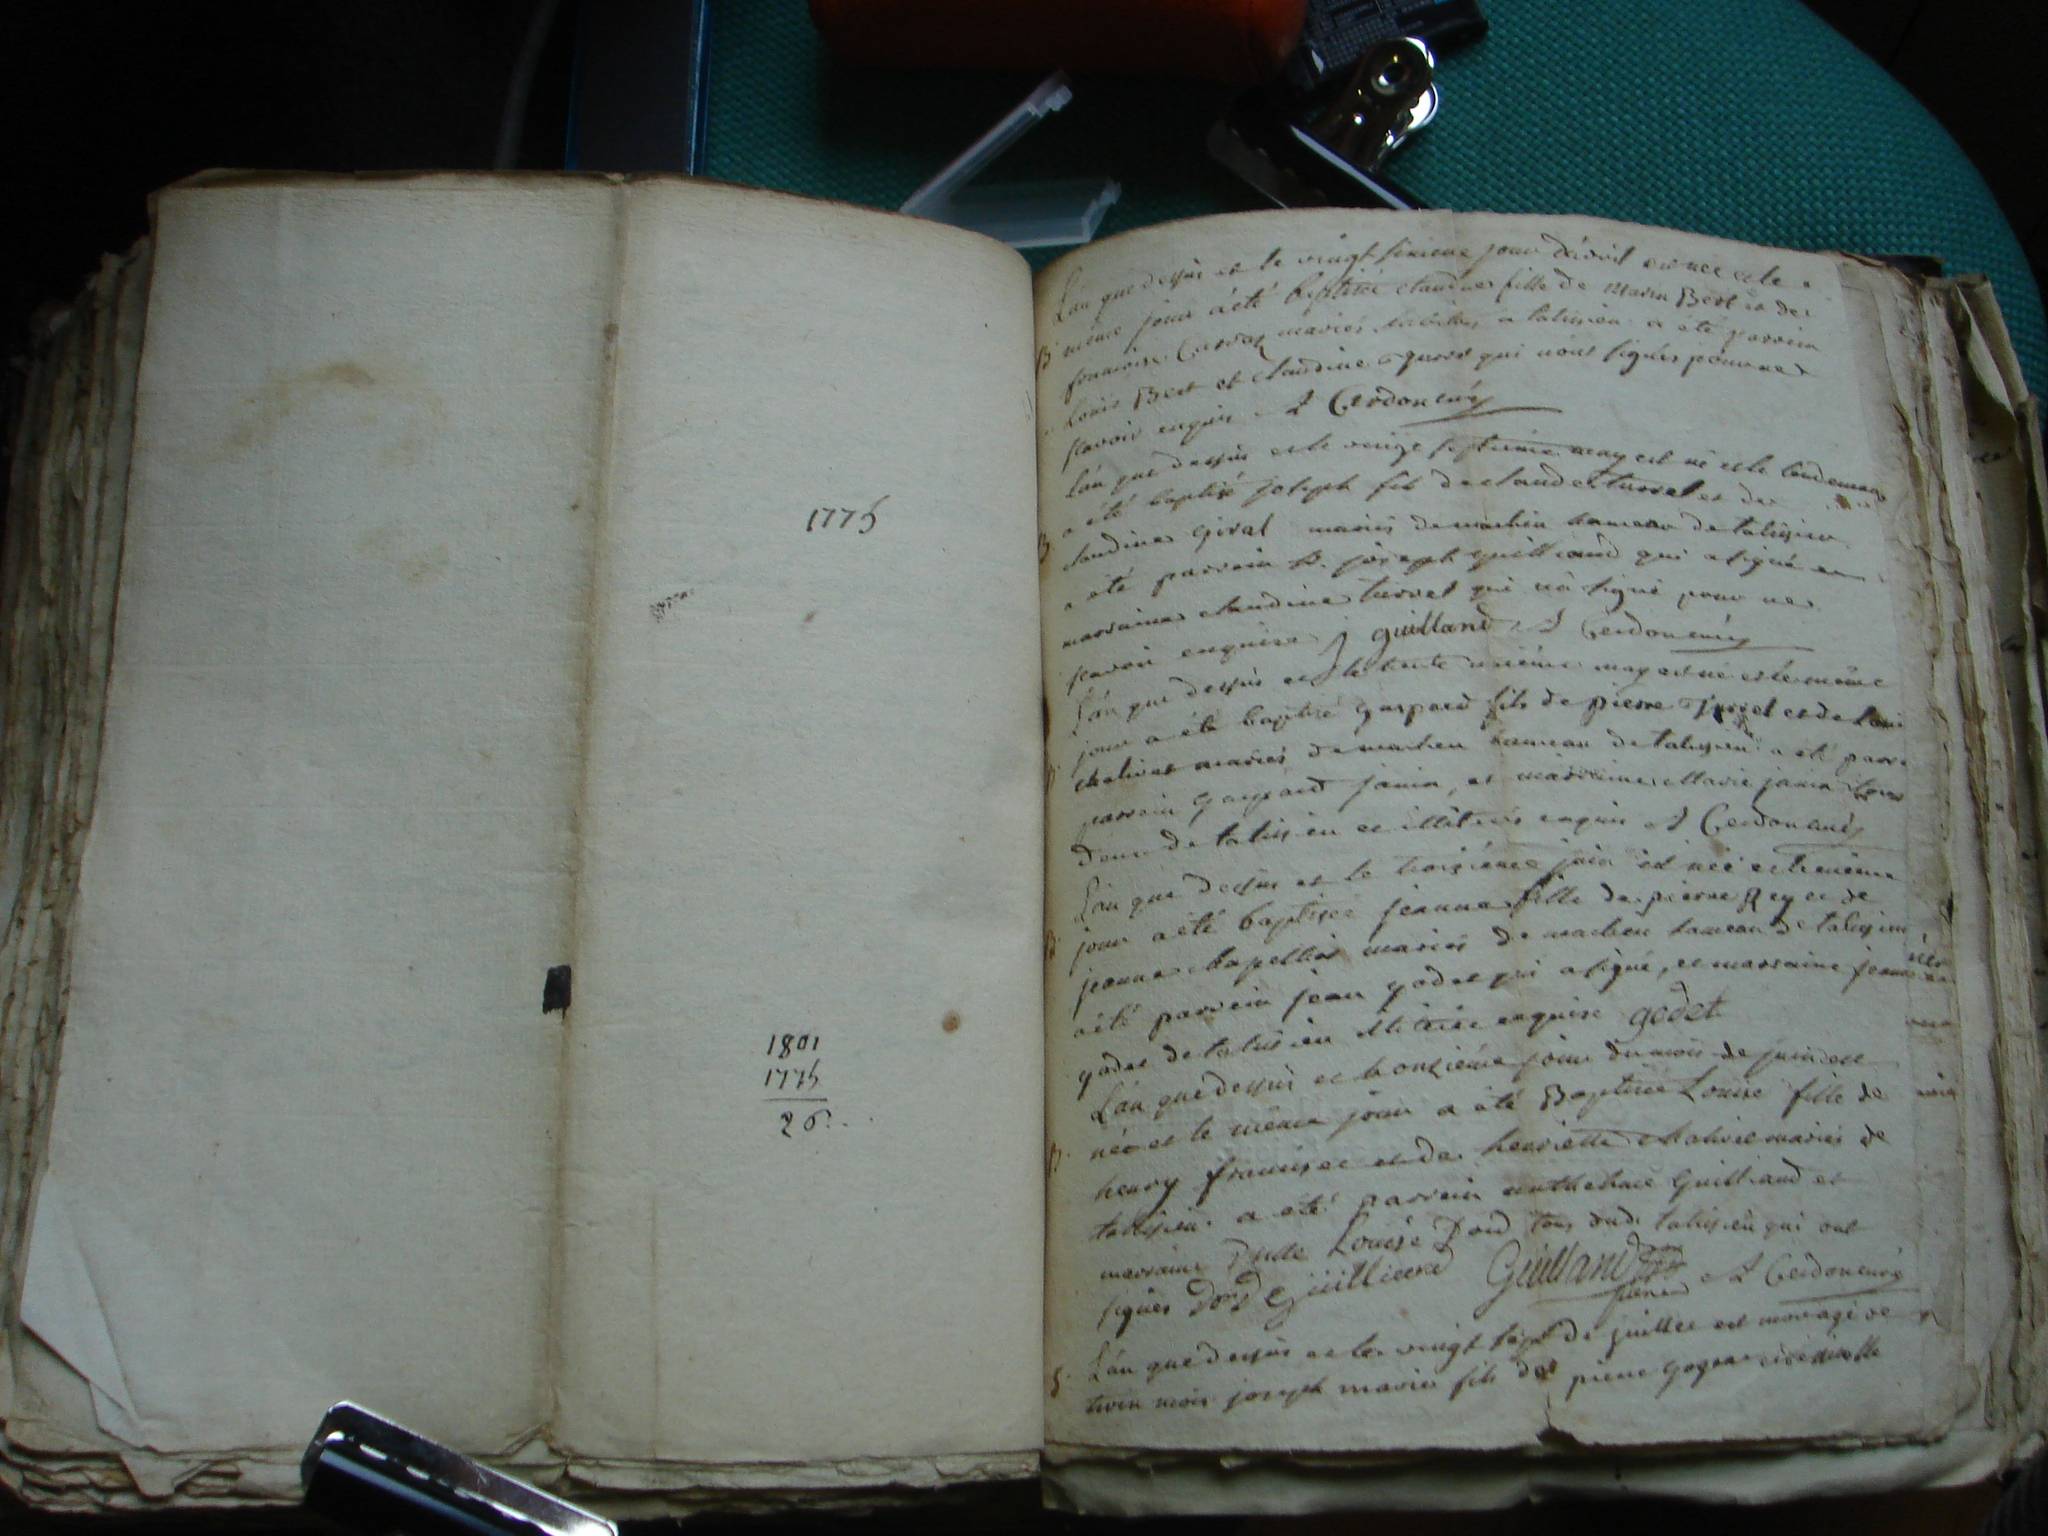 1775
1801
1775
26
L'an que dessus et le vingt sixieme jour d'avril est nee et le
B même jour a été baptisée claudine fille de Marin Bert et de
françoise mariés a talissieu a été parrein
Louis Bert et claudine qui n'ont signés pour ne
scavoir enquis Cerdon curé
L'an que dessus et le vingt septieme may est né et le lendemain
a été baptisé joseph fils de claude turrel et de
B claudine Giral mariés de machin hameau de talissieu
a été parrein Sr joseph guilland qui a signé et
marraine claudine turrel qui n'a signé pour ne
scavoir enquise j guilland Cerdon curé
L'an que dessus et le trente unième may est né et le même
jour a été baptisé gaspard fils de pierre Turrel et de
mariés de machin hameau de talissieu a été
parrein gaspard janin, et marraine Marie janin tous
deux de talissieu et illiterés enquis Cerdon curé
L'an que dessus et le troisième juin est née et le même
B jour a été baptisée jeanne fille de pierre Rey et de
jeanne chapelles mariés de machin hameau de talissieu
a été parrein jean godet qui a signé, et marraine jeanne
godet de talissieu illiterée enquise godet
L'an que dessus et le onzième jour du mois de juin est
B née et le même jour a été Baptisée Louise fille de
henry et de henriette mariés de
talissieu. a été parrein anthelme Guilland et
marraine Dlle Louise Dond tous deux de talissieu qui ont
signés Dond Guilland Cerdon curé
S L'an que dessus et le vingt sept de juillet est mort agé de
trois mois joseph marie fils de pierre